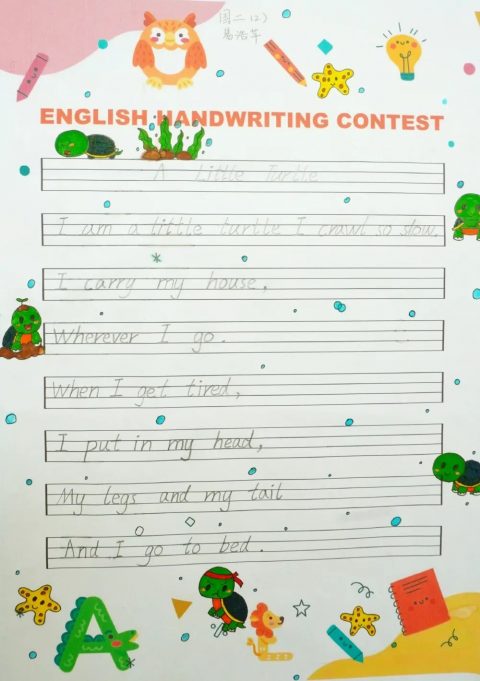 二 (2)
ENGLISH HANDWRITING CONTEST
A Little Turtle
I am a little turtle I crawl so slow.
I carry my house,
Wherever I go.
When I get tired,
I put in my head,
My legs and my tail
And I go to bed.